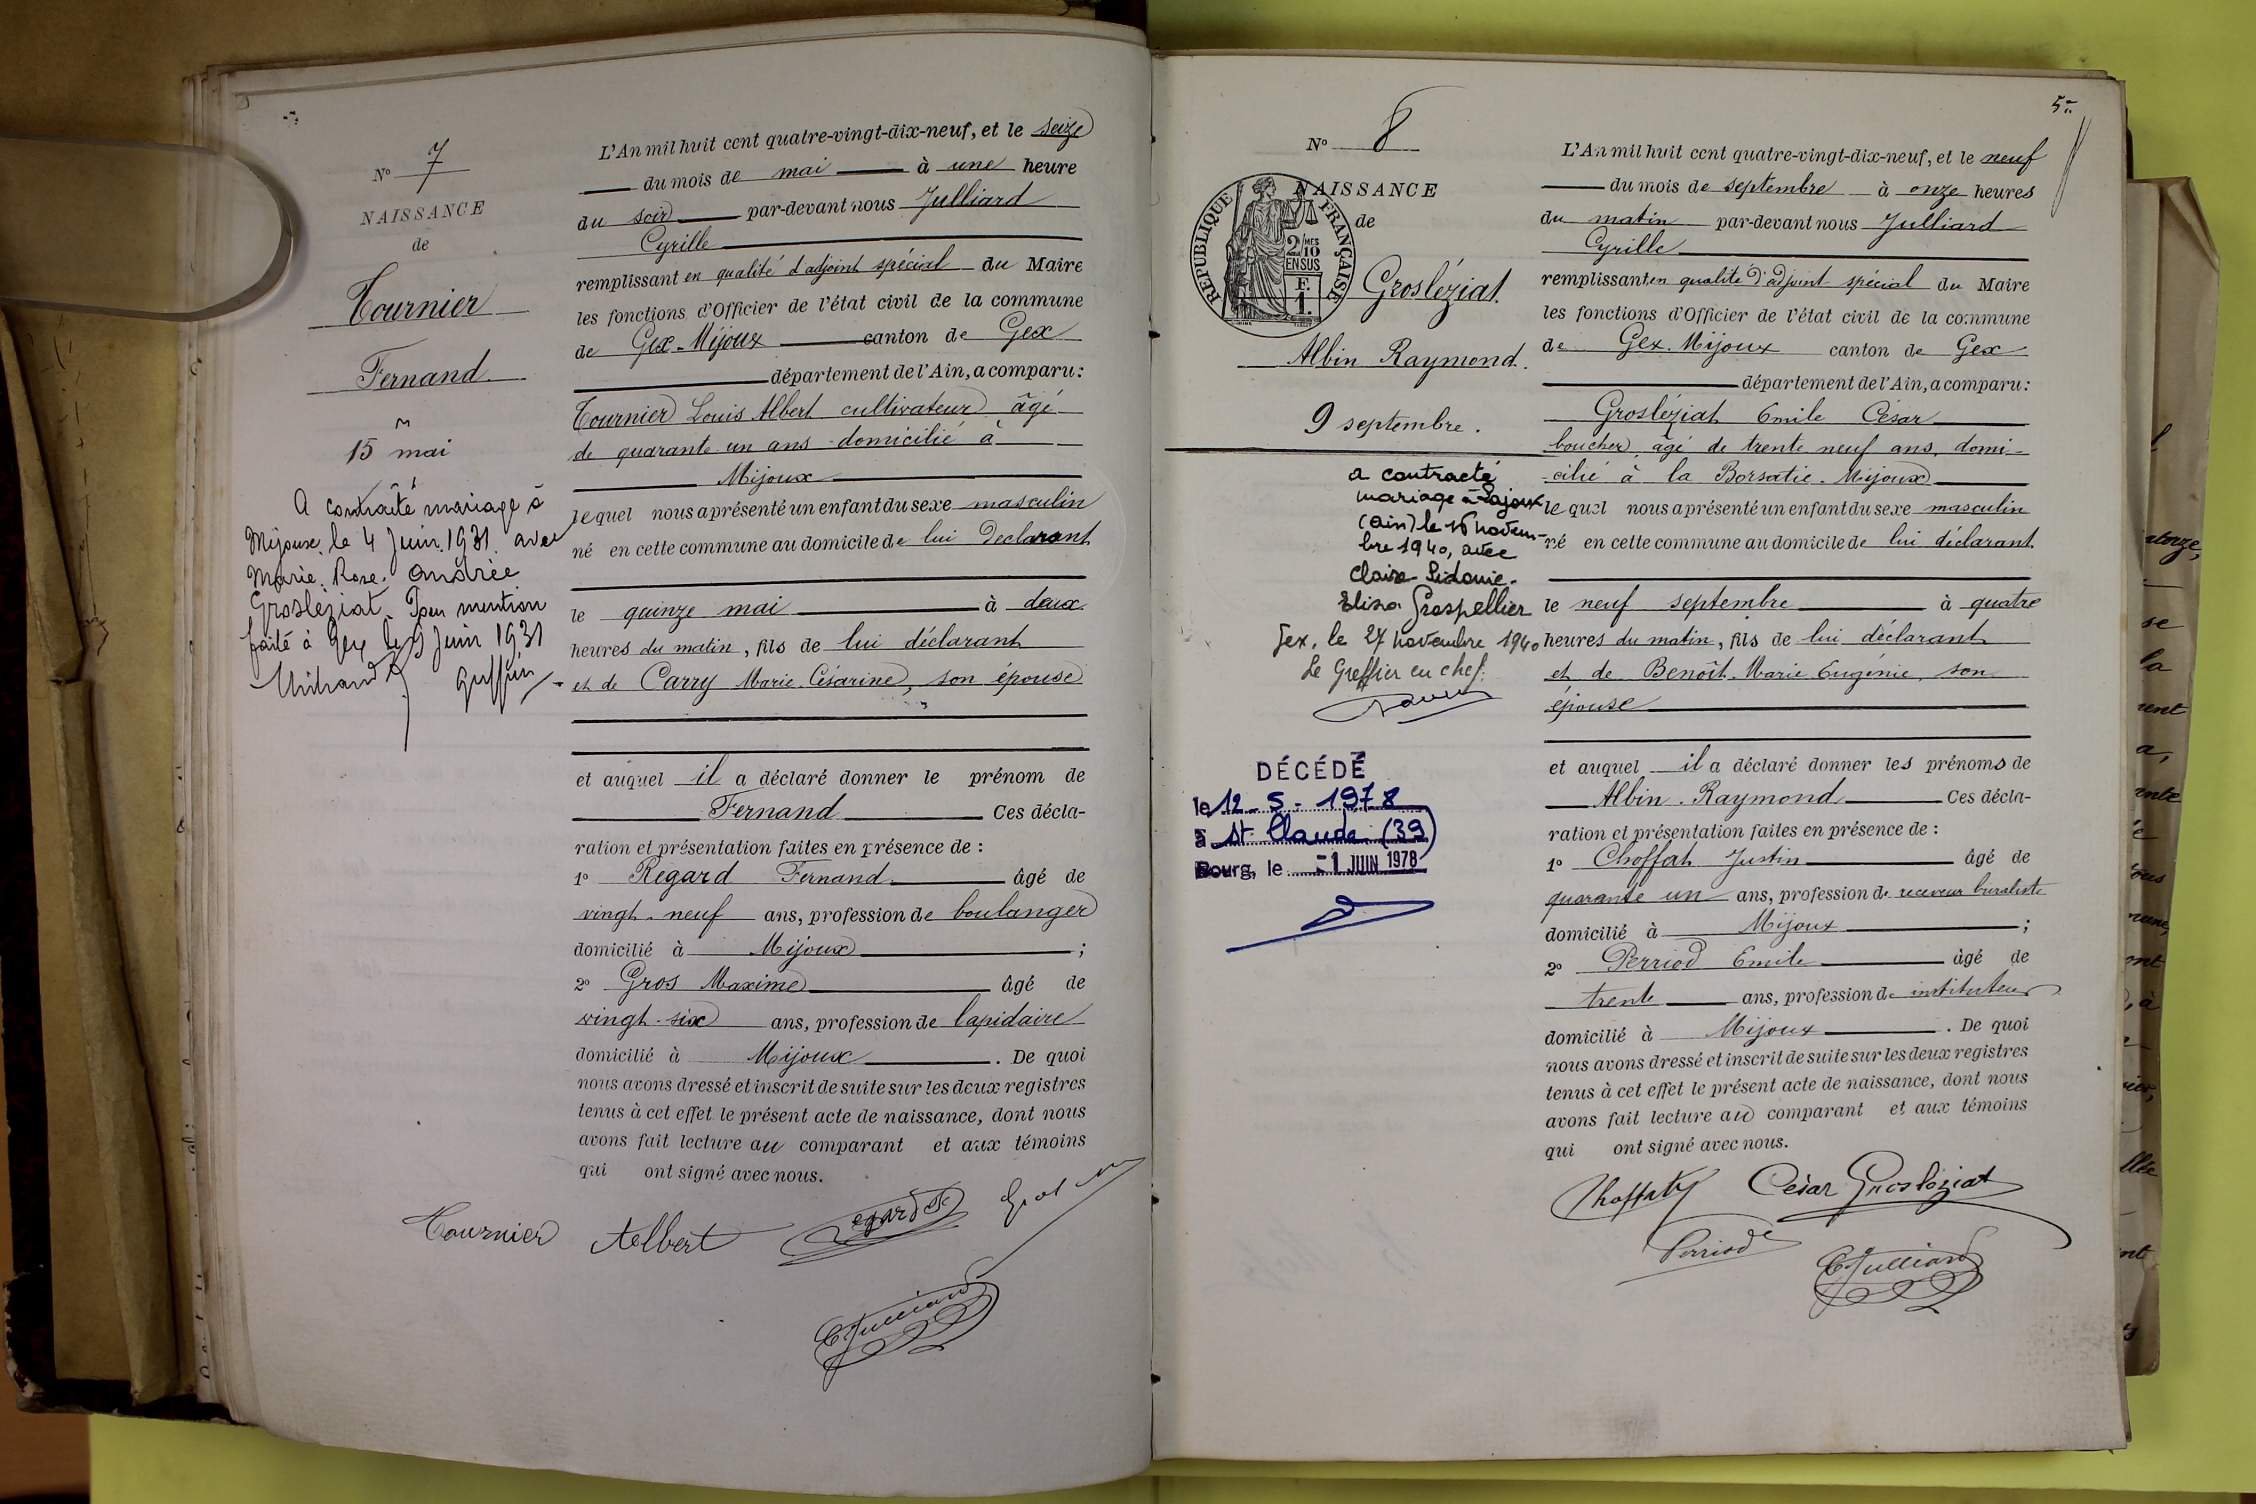 No 7
NAISSANCE
de
Tournier
Fernand
15 mai
A contracté mariage à
Mijoux, le 4 Juin 1931 avec
Marie. Rose. Andrée
Grosléziat. Pour mention
faite à Gex le 9 Juin 1931
L'An mil huit cent quatre-vingt-dix-neuf, et le seize
du mois de mai à une heure
du soir par-devant nous Julliard
Cyrille
remplissant en qualité d'adjoint spécial du Maire
les fonctions d'Officier de l'état civil de la commune
de Gex-Mijoux canton de Gex
département de l'Ain, a comparu :
Tournier Louis Albert cultivateur âgé
de quarante un ans domicilié à
Mijoux
lequel nous a présenté un enfant du sexe masculin
né en cette commune au domicile de lui déclarant
le quinze mai à deux
heures du matin, fils de lui déclarant
et de Carry Marie Césarine, son épouse
et auquel il a déclaré donner le prénom de
Fernand Ces décla-
ration et présentation faites en présence de :
1o Regard Fernand âgé de
vingt-neuf ans, profession de boulanger
domicilié à Mijoux ;
2o Gros Maxime âgé de
vingt-six ans, profession de lapidaire
domicilié à Mijoux . De quoi
nous avons dressé et inscrit de suite sur les deux registres
tenus à cet effet le présent acte de naissance, dont nous
avons fait lecture au comparant et aux témoins
qui ont signé avec nous.
Tournier Albert Regard F. Gros M
C Julliard
5
No 8
NAISSANCE
de
RÉPUBLIQUE FRANÇAISE
2/10 MES
EN SUS
F.
1.
Grosléziat.
Albin Raymond.
9 septembre.
a contracté
mariage à Lajoux
(Ain) le 16 novem-
bre 1940, avec
Claire Sidonie-
Elisa Grospellier
Gex, le 27 novembre 1940
Le Greffier en chef.
DÉCÉDÉ
le 12 - 5 - 1978
à St Claude (39)
Bourg, le -1 JUIN 1978
L'An mil huit cent quatre-vingt-dix-neuf, et le neuf
du mois de septembre à onze heures
du matin par-devant nous Julliard
Cyrille
remplissant en qualité d'adjoint spécial du Maire
les fonctions d'Officier de l'état civil de la commune
de Gex. Mijoux canton de Gex
département de l'Ain, a comparu :
Grosléziat Emile César
boucher, âgé de trente neuf ans, domi-
cilié à la Borsatie. Mijoux
lequel nous a présenté un enfant du sexe masculin
né en cette commune au domicile de lui déclarant
le neuf septembre à quatre
heures du matin, fils de lui déclarant
et de Benoît Marie Eugénie, son
épouse
et auquel il a déclaré donner les prénoms de
Albin Raymond Ces décla-
ration et présentation faites en présence de :
1o Choffat Justin âgé de
quarante un ans, profession de receveur buraliste
domicilié à Mijoux ;
2o Perriod Emile âgé de
trente ans, profession de instituteur
domicilié à Mijoux . De quoi
nous avons dressé et inscrit de suite sur les deux registres
tenus à cet effet le présent acte de naissance, dont nous
avons fait lecture au comparant et aux témoins
qui ont signé avec nous.
Choffat J César Grosléziat
Perriod E
C Julliard